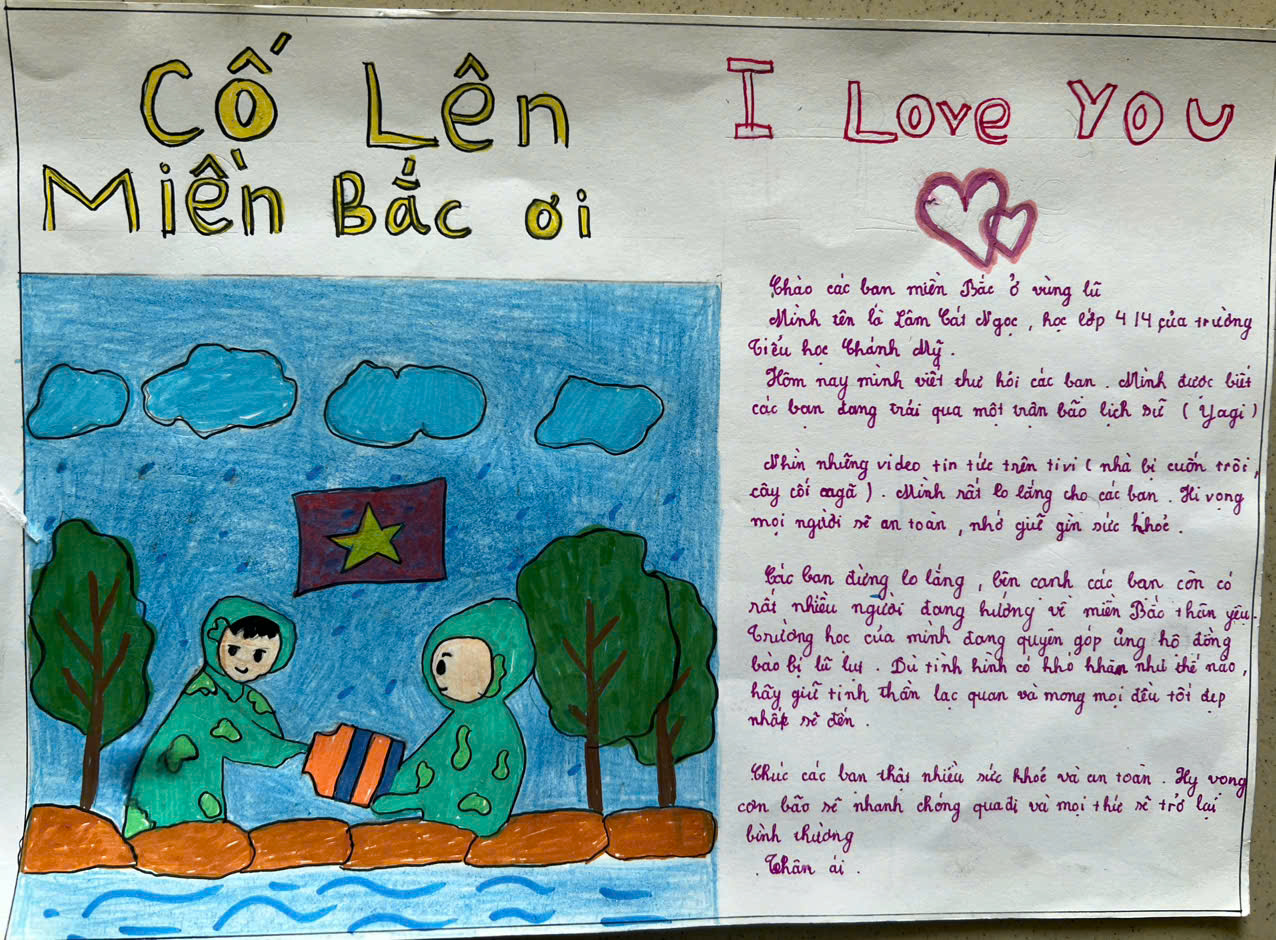 Cố Lên
Miền Bắc ơi
I Love You
Chào các bạn miền Bắc ở vùng lũ
Mình tên là Lâm Cát Ngọc, học lớp 4/4 của trường
Tiểu học Chánh Mỹ.
Hôm nay mình viết thư hỏi các bạn. Mình được biết
các bạn đang trải qua một trận bão lịch sử (Yagi)
Nhìn những video tin tức trên tivi (nhà bị cuốn trôi,
cây cối ngã). Mình rất lo lắng cho các bạn. Hi vọng
mọi người sẽ an toàn, nhớ giữ gìn sức khỏe.
Các bạn đừng lo lắng, bên cạnh các bạn còn có
rất nhiều người đang hướng về miền Bắc thân yêu.
Trường học của mình đang quyên góp ủng hộ đồng
bào bị lũ lụt. Dù tình hình có khó khăn như thế nào,
hãy giữ tinh thần lạc quan và mong mọi đều tốt đẹp
nhất sẽ đến.
Chúc các bạn thật nhiều sức khỏe và an toàn. Hy vọng
cơn bão sẽ nhanh chóng qua đi và mọi thứ sẽ trở lại
bình thường
Thân ái.